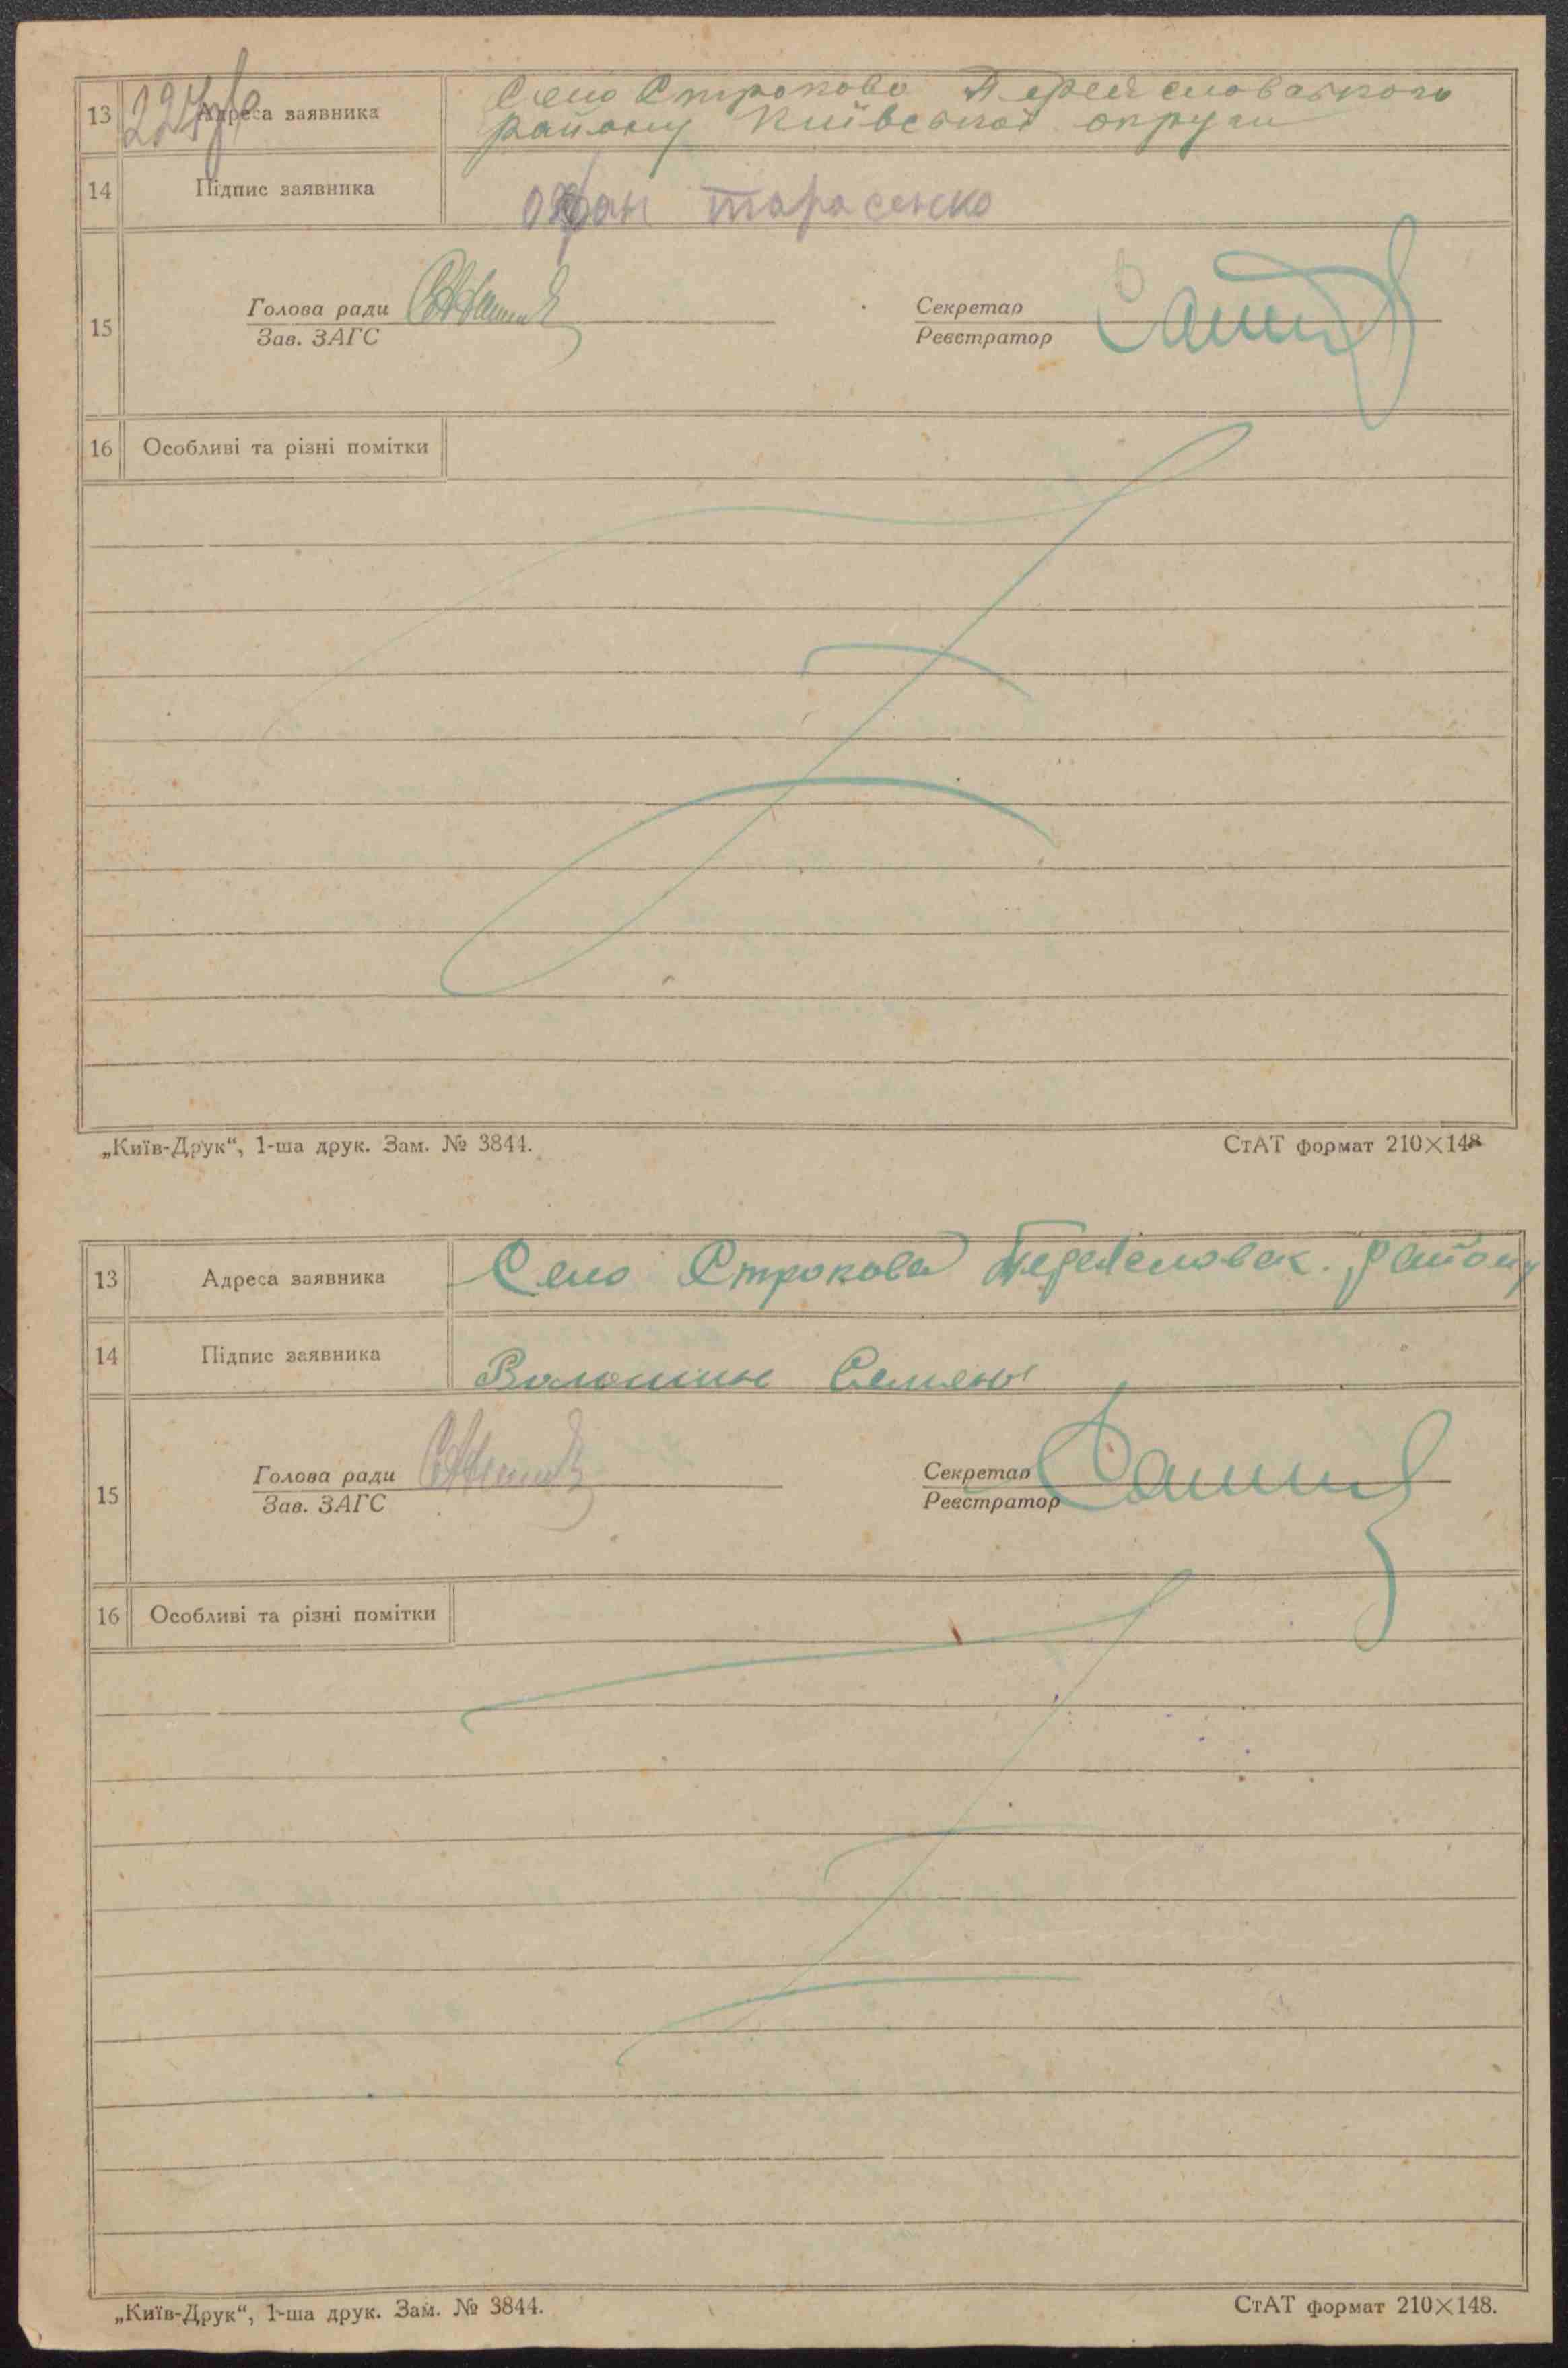 13 Адреса заявника Село Строкова Переяславського
району Київської округи
14 Підпис заявника тарасенко
15 Голова ради Секретар
Зав. ЗАГС Реєстратор
16 Особливі та різні помітки
„Київ-Друк“, 1-ша друк. Зам. № 3844. СтАТ формат 210×148
13 Адреса заявника Село Строкова Переяславськ. району
14 Підпис заявника Волошин Семен
15 Голова ради Секретар
Зав. ЗАГС Реєстратор
16 Особливі та різні помітки
„Київ-Друк“, 1-ша друк. Зам. № 3844. СтАТ формат 210×148.